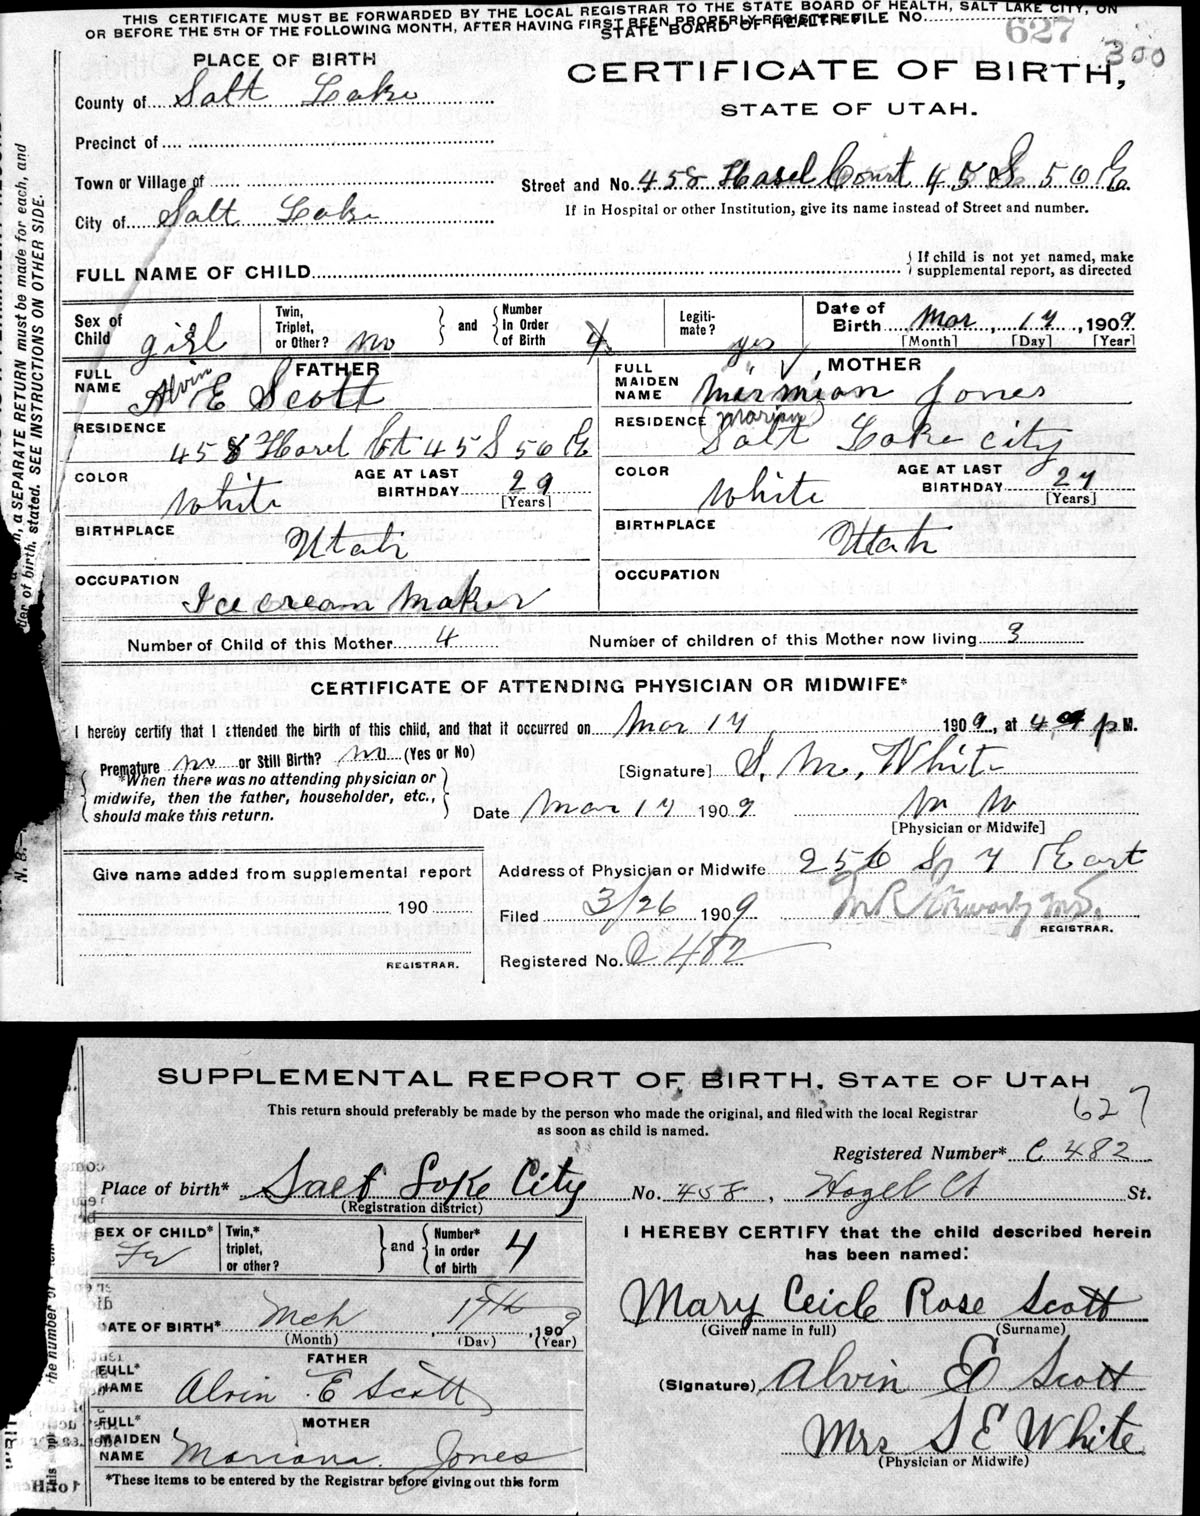 THIS CERTIFICATE MUST BE FORWARDED BY THE LOCAL REGISTRAR TO THE STATE BOARD OF HEALTH, SALT LAKE CITY, ON
OR BEFORE THE 5TH OF THE FOLLOWING MONTH, AFTER HAVING FIRST BEEN PROPERLY REGISTERED.
STATE BOARD OF HEALTH FILE NO. 627
300
PLACE OF BIRTH
CERTIFICATE OF BIRTH,
STATE OF UTAH.
County of Salt Lake
Precinct of
Town or Village of
City of Salt Lake
Street and No. 458 Hasel Court 45 S 56 E.
If in Hospital or other Institution, give its name instead of Street and number.
FULL NAME OF CHILD
If child is not yet named, make
supplemental report, as directed
Sex of Child girl
Twin, Triplet, or Other? no
and Number In Order of Birth 4
Legitimate? yes
Date of Birth Mar 17, 1909
[Month] [Day] [Year]
FATHER
FULL NAME Alvin E Scott
MOTHER
FULL MAIDEN NAME mirmian Jones
(Marian)
RESIDENCE 458 Hasel Ct 45 S 56 E
RESIDENCE Salt Lake city
COLOR white
AGE AT LAST BIRTHDAY 29
[Years]
COLOR white
AGE AT LAST BIRTHDAY 27
[Years]
BIRTHPLACE Utah
BIRTHPLACE Utah
OCCUPATION Ice cream maker
OCCUPATION
Number of Child of this Mother 4
Number of children of this Mother now living 3
CERTIFICATE OF ATTENDING PHYSICIAN OR MIDWIFE*
I hereby certify that I attended the birth of this child, and that it occurred on Mar 17 1909, at 4 p M.
Premature no or Still Birth? no (Yes or No)
*When there was no attending physician or
midwife, then the father, householder, etc.,
should make this return.
[Signature] S. M. White
Date Mar 17 1909
[Physician or Midwife]
Give name added from supplemental report
190
REGISTRAR.
Address of Physician or Midwife 256 So 7 East
Filed 3/26 1909
REGISTRAR.
Registered No. C 482
a SEPARATE RETURN must be made for each, and
of birth, stated. SEE INSTRUCTIONS ON OTHER SIDE.
N. B.
SUPPLEMENTAL REPORT OF BIRTH, STATE OF UTAH
This return should preferably be made by the person who made the original, and filed with the local Registrar
as soon as child is named.
627
Registered Number* C 482
Place of birth* Salt Lake City
(Registration district)
No. 458, Hazel Ct St.
SEX OF CHILD*
Twin,* triplet, or other?
and Number* in order of birth 4
DATE OF BIRTH* Mch 17th, 1909
(Month) (Day) (Year)
FATHER
FULL* NAME Alvin E Scott
MOTHER
FULL* MAIDEN NAME Mariana Jones
*These items to be entered by the Registrar before giving out this form
I HEREBY CERTIFY that the child described herein
has been named:
Mary Ceicle Rose Scott
(Given name in full) (Surname)
(Signature) Alvin E Scott
Mrs S E White
(Physician or Midwife)